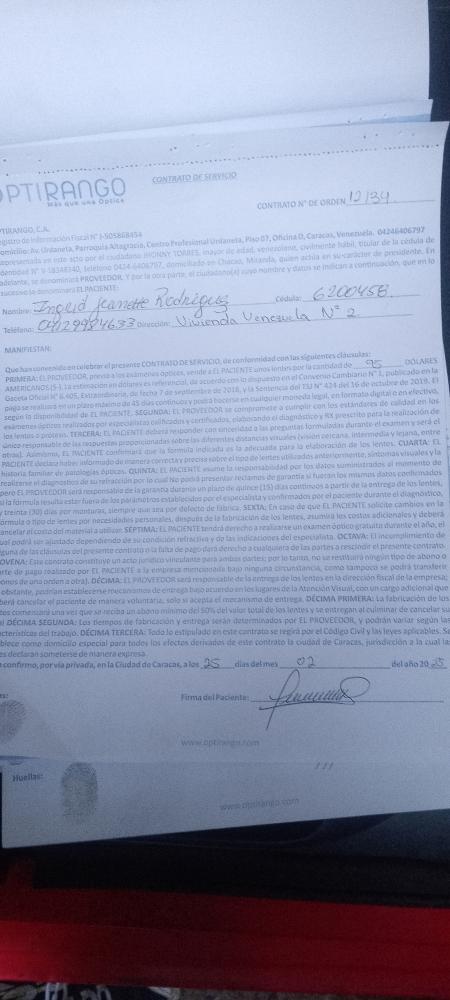 OPTIRANGO
Más que una Óptica
CONTRATO DE SERVICIO
CONTRATO N° DE ORDEN 12134
OPTIRANGO, C.A.
Registro de Información Fiscal N° J-505868454
Domicilio: Av. Urdaneta, Parroquia Altagracia, Centro Profesional Urdaneta, Piso 07, Oficina D, Caracas, Venezuela. 04246406797
representada en este acto por el ciudadano JHONNY TORRES, mayor de edad, venezolano, civilmente hábil, titular de la cédula de
identidad N° V-18348340, teléfono 0424-6406797, domiciliado en Chacao, Miranda, quien actúa en su carácter de presidente. En
adelante, se denominará PROVEEDOR. Y por la otra parte, el ciudadano(a) cuyo nombre y datos se indican a continuación, que en lo
sucesivo se denominará EL PACIENTE:
Nombre: Ingrid Jeanette Rodriguez Cédula: 6200458
Teléfono: 04129984633 Dirección: Vivienda Venezuela N° 2
MANIFIESTAN:
Que han convenido en celebrar el presente CONTRATO DE SERVICIO, de conformidad con las siguientes cláusulas:
PRIMERA: EL PROVEEDOR, previo a los exámenes ópticos, vende a EL PACIENTE unos lentes por la cantidad de 95 DÓLARES
AMERICANOS ($). La estimación en dólares es referencial, de acuerdo con lo dispuesto en el Convenio Cambiario N° 1, publicado en la
Gaceta Oficial N° 6.405, Extraordinario, de fecha 7 de septiembre de 2018, y la Sentencia del TSJ N° 424 del 16 de octubre de 2019. El
pago se realizará en un plazo máximo de 45 días continuos y podrá hacerse en cualquier moneda legal, en formato digital o en efectivo,
según la disponibilidad de EL PACIENTE. SEGUNDA: EL PROVEEDOR se compromete a cumplir con los estándares de calidad en los
exámenes ópticos realizados por especialistas calificados y certificados, elaborando el diagnóstico y RX prescrito para la realización de
los lentes o proteus. TERCERA: EL PACIENTE deberá responder con sinceridad a las preguntas formuladas durante el examen y será el
único responsable de las respuestas proporcionadas sobre las diferentes distancias visuales (visión cercana, intermedia y lejana, entre
otras). Asimismo, EL PACIENTE confirmará que la fórmula indicada es la adecuada para la elaboración de los lentes. CUARTA: EL
PACIENTE declara haber informado de manera correcta y precisa sobre el tipo de lentes utilizados anteriormente, síntomas visuales y la
historia familiar de patologías ópticas. QUINTA: EL PACIENTE asume la responsabilidad por los datos suministrados al momento de
realizarse el diagnóstico de su refracción por lo cual No podrá presentar reclamos de garantía si fueran los mismos datos confirmados
pero EL PROVEEDOR será responsable de la garantía durante un plazo de quince (15) días continuos a partir de la entrega de los lentes,
si la fórmula resulta estar fuera de los parámetros establecidos por el especialista y confirmados por el paciente durante el diagnóstico,
y treinta (30) días por monturas, siempre que sea por defecto de fábrica. SEXTA: En caso de que EL PACIENTE solicite cambios en la
fórmula o tipo de lentes por necesidades personales, después de la fabricación de los lentes, asumirá los costos adicionales y deberá
cancelar el costo del material a utilizar. SÉPTIMA: EL PACIENTE tendrá derecho a realizarse un examen óptico gratuito durante el año, el
cual podrá ser ajustado dependiendo de su condición refractiva y de las indicaciones del especialista. OCTAVA: El incumplimiento de
alguna de las cláusulas del presente contrato o la falta de pago dará derecho a cualquiera de las partes a rescindir el presente contrato.
NOVENA: Este contrato constituye un acto jurídico vinculante para ambas partes; por lo tanto, no se restituirá ningún tipo de abono o
parte de pago realizado por EL PACIENTE a la empresa mencionada bajo ninguna circunstancia, como tampoco se podrá transferir
abonos de una orden a otra). DÉCIMA: EL PROVEEDOR será responsable de la entrega de los lentes en la dirección fiscal de la empresa;
obstante, podrían establecerse mecanismos de entrega bajo acuerdo en los lugares de la Atención Visual, con un cargo adicional que
deberá cancelar el paciente de manera voluntaria, solo si acepta el mecanismo de entrega. DÉCIMA PRIMERA: La fabricación de los
lentes comenzará una vez que se reciba un abono mínimo del 50% del valor total de los lentes y se entregan al culminar de cancelar su
DÉCIMA SEGUNDA: Los tiempos de fabricación y entrega serán determinados por EL PROVEEDOR, y podrán variar según las
características del trabajo. DÉCIMA TERCERA: Todo lo estipulado en este contrato se regirá por el Código Civil y las leyes aplicables. Se
establece como domicilio especial para todos los efectos derivados de este contrato la ciudad de Caracas, jurisdicción a la cual las
partes declaran someterse de manera expresa.
confirmo, por vía privada, en la Ciudad de Caracas, a los 25 días del mes 02 del año 2025
Firma del Paciente:
www.optirango.com
Huellas:
www.optirango.com